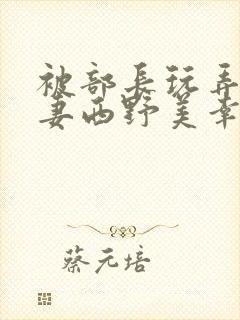 被部長玩弄
妻西野美幸
蔡元培